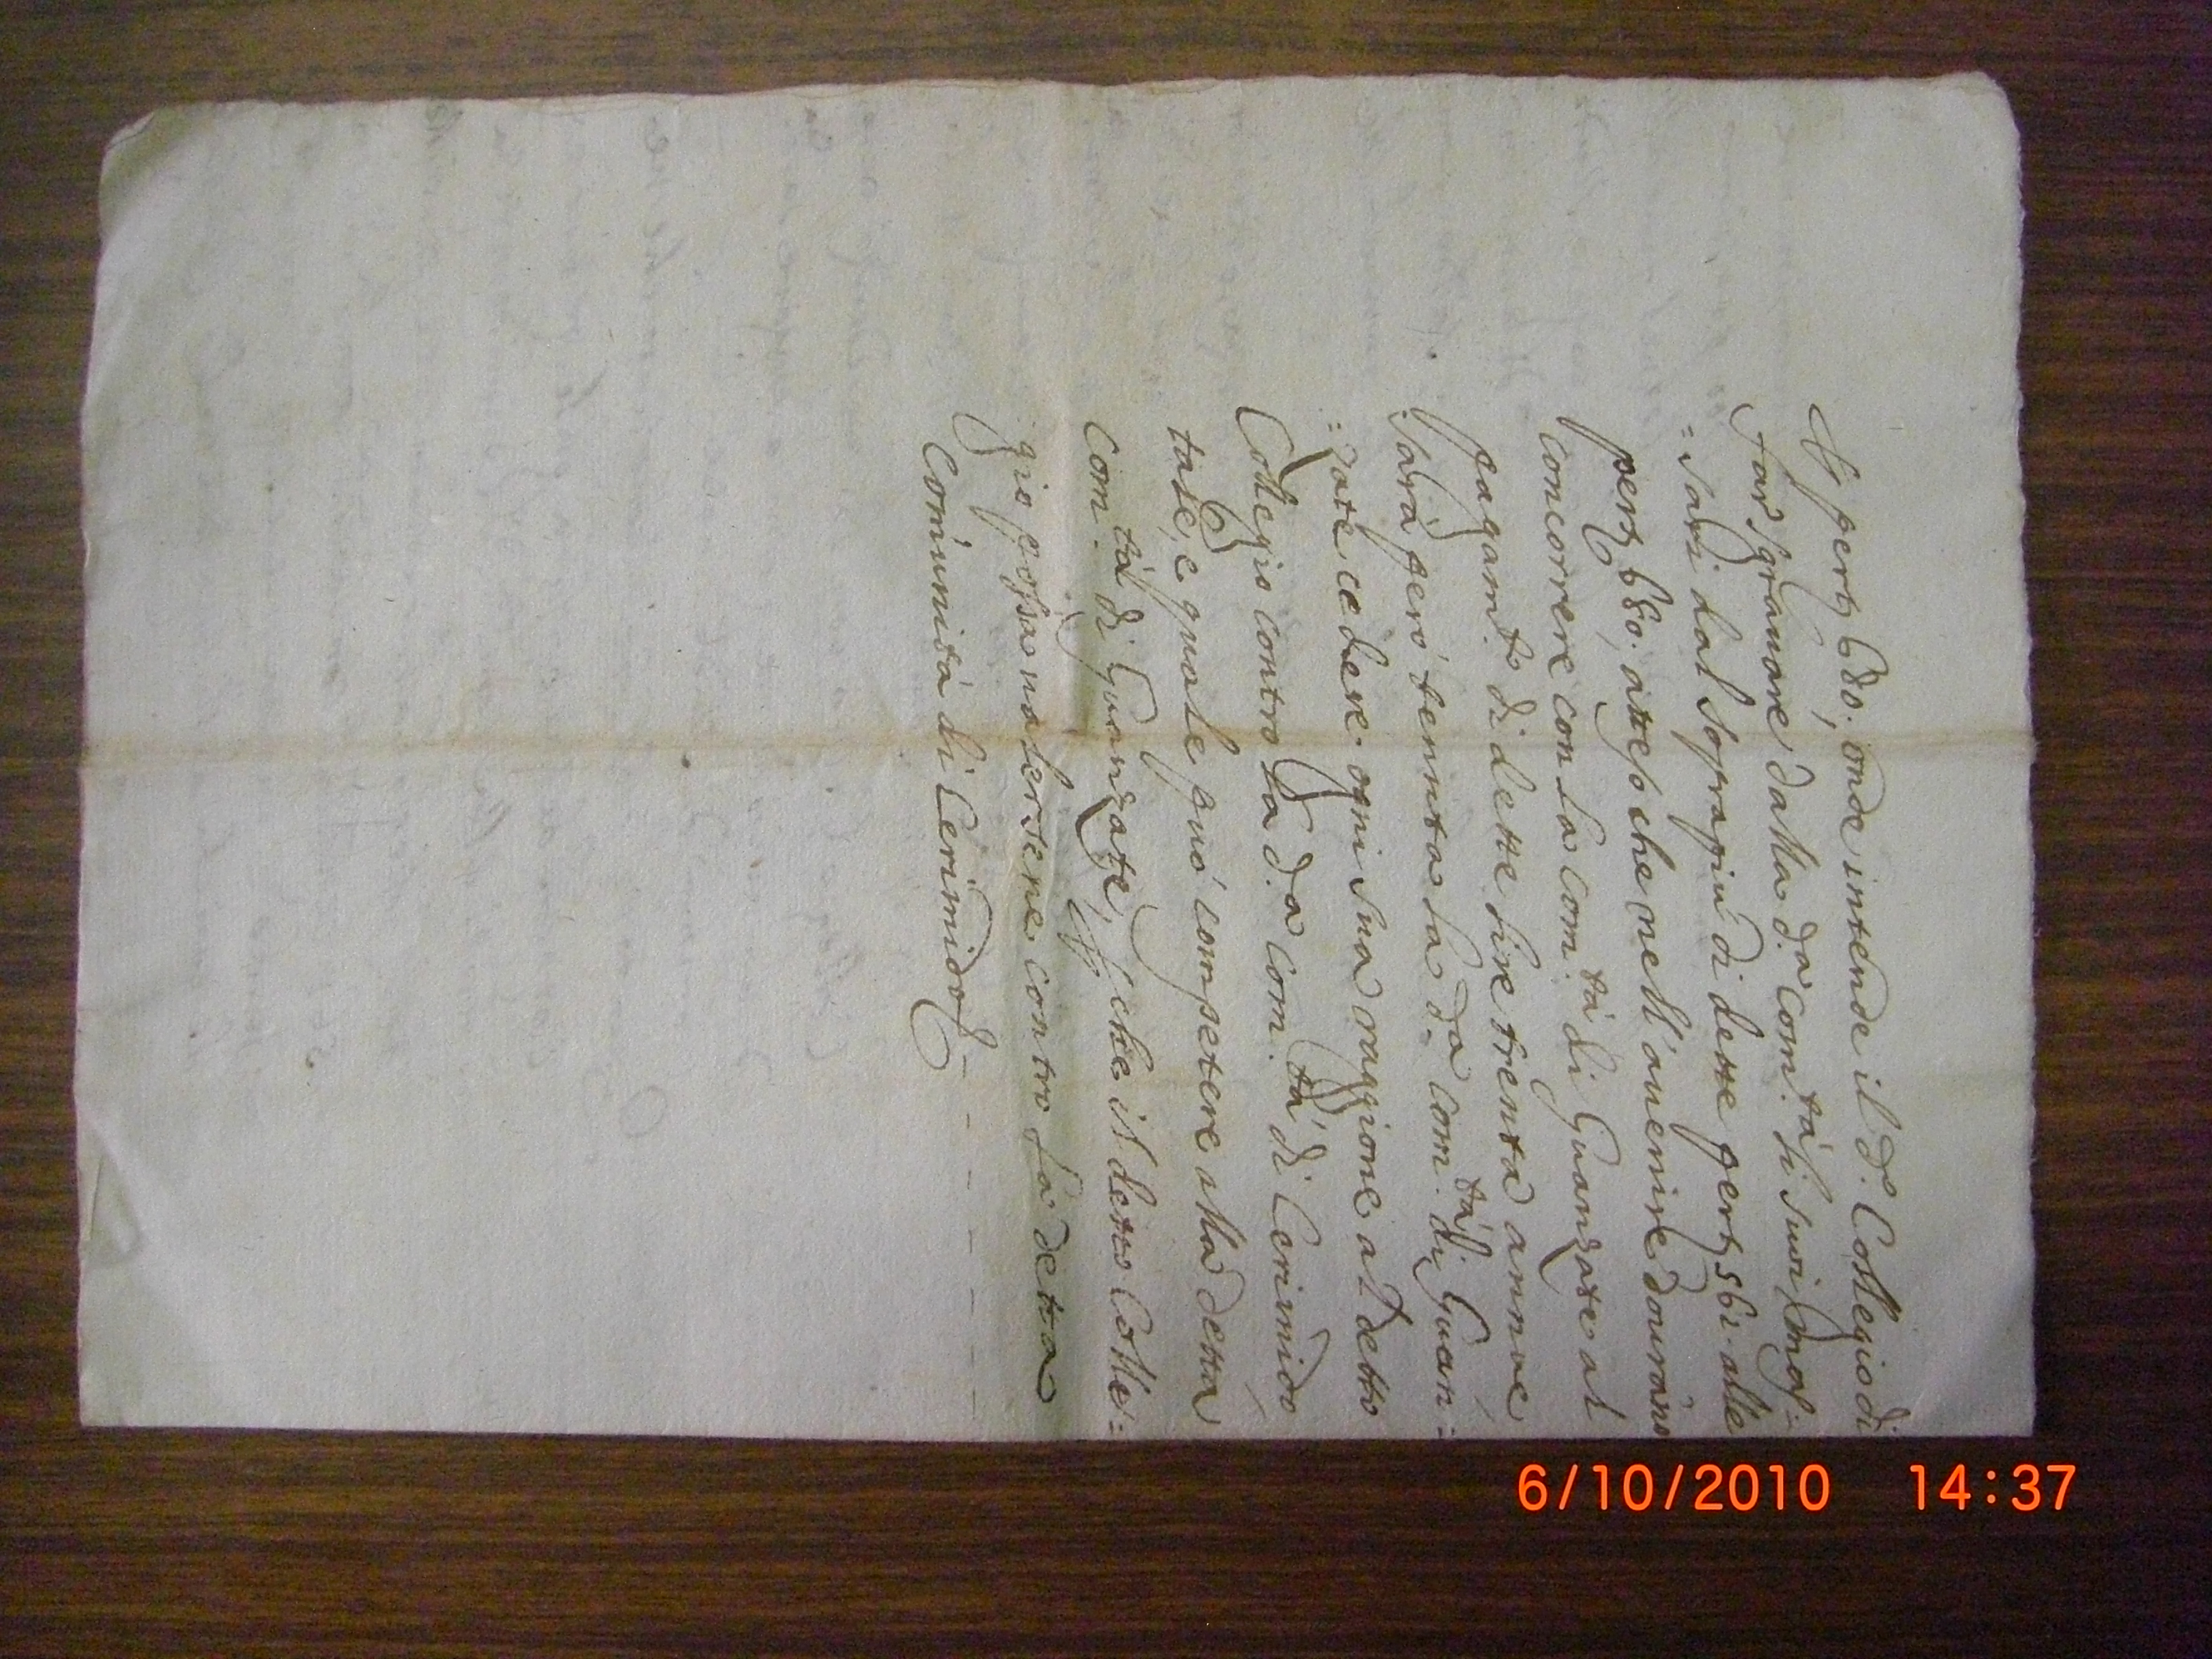 pert. 680; onde intende il d.º Collegio di
far sgravare dalla d.a Com.tà li suoi Mas=
=sari dal soprapiù di dette pert. 561 alle
pert. 680. atteso che nell'avenire dovrano
concorrere con la Com.tà di Guanzate al
pagam.to di dette lire trenta annue
sarà però tenuta la d.a Com.tà di Guan=
=zate cedere ogni sua raggione al detto
Collegio contro la d.a Com.tà di Cerimido
tale, e quale può competere alla detta
Com.tà di Guanzate, che il detto Colle=
gio possa valersene contro la detta
Comunità di Cerimido
6/10/2010 14:37